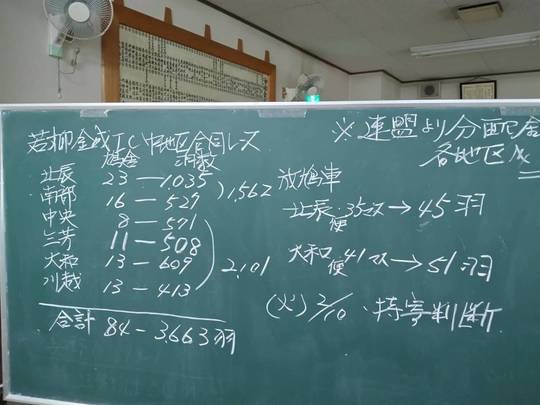 若柳金成IC中地区合同レース
鳩舎 羽数
北辰 23 - 1.035
南部 16 - 527
1,562
中央 8 - 571
三芳 11 - 508
大和 13 - 609
川越 13 - 413
2,101
合計 84 - 3.663羽
※連盟より分配金
各地区
放鳩車
北辰便 35マス→45羽
大和便 41マス→51羽
(火) 2/10・持寄判断